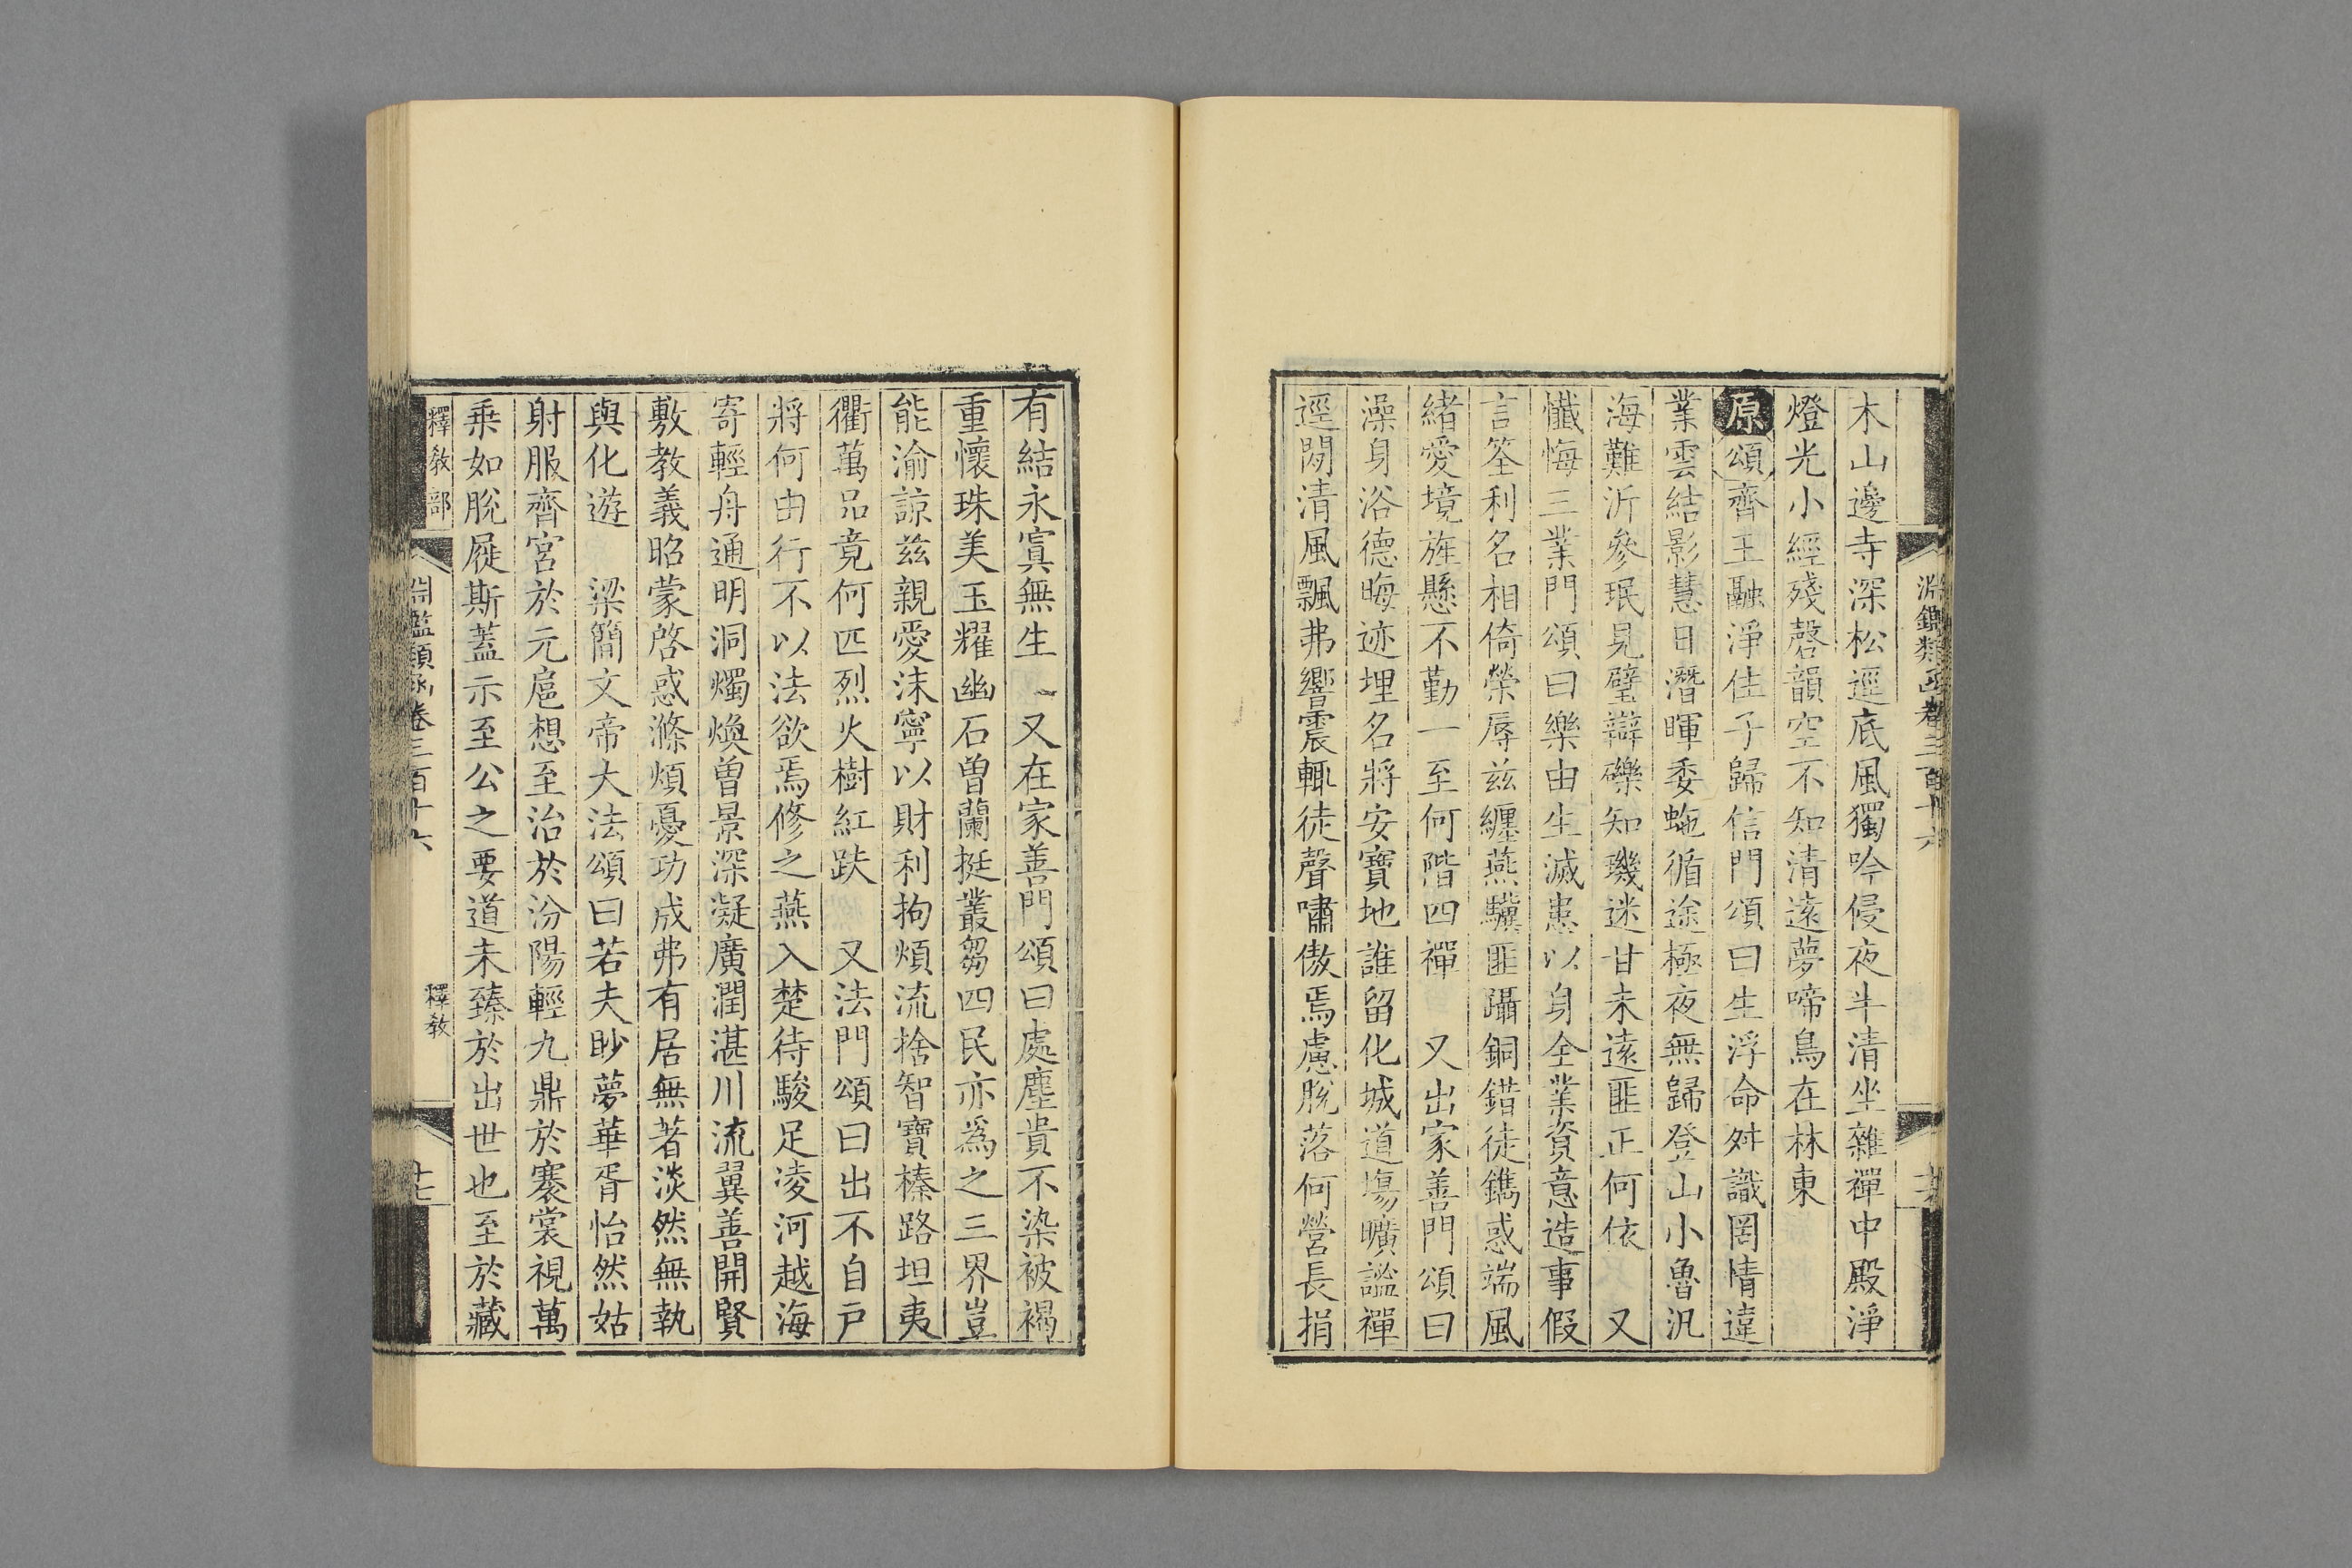 淵鑑類函卷三百十六
木山邊寺深松逕底風獨吟侵夜半清坐雜禪中殿淨
燈光小經殘磬韻空不知清遠夢啼鳥在林東
原頌齊王融淨住子歸信門頌曰生浮命舛識罔情違
業雲結影慧日潛暉委虵循途極夜無歸登山小魯汎
海難沂參珉見璧辯礫知璣迷甘未遠匪正何依 又
懺悔三業門頌曰樂由生滅患以身全業資意造事假
言筌利名相倚榮辱兹纏燕驥匪躡銅錯徒鐫惑端風
緒愛境旌懸不勤一至何階四禪 又出家善門頌曰
澡身浴德晦迹埋名將安寶地誰留化城道場曠謐禪
逕閴清風飄弗響震輒徒聲嘯傲焉慮脫落何營長捐
有結永寘無生 又在家善門頌曰處塵貴不染被褐
重懷珠美玉耀幽石曽蘭挺叢芻四民亦爲之三界豈
能渝諒兹親愛沫寧以財利拘煩流捨智寶榛路坦夷
衢萬品竟何匹烈火樹紅趺 又法門頌曰出不自戸
將何由行不以法欲焉修之燕入楚待駿足凌河越海
寄輕舟通明洞燭煥曽景深凝廣潤湛川流翼善開賢
敷教義昭蒙啓惑滌煩憂功成弗有居無著淡然無執
與化遊 梁簡文帝大法頌曰若夫眇夢華胥怡然姑
射服齊宮於元扈想至治於汾陽輕九鼎於褰裳視萬
乗如脫屣斯蓋示至公之要道未臻於出世也至於藏
釋教部 淵鑑類函卷三百十六 釋教 十七